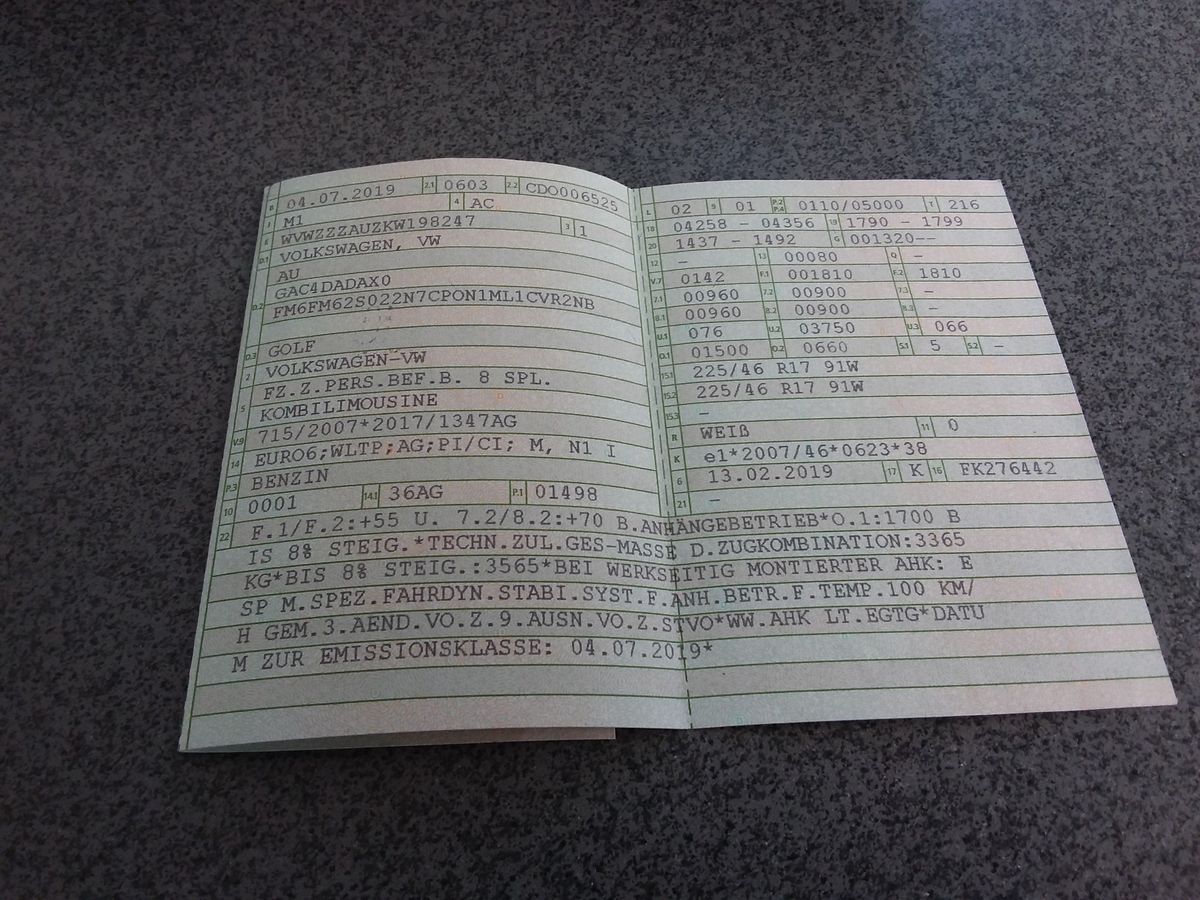 B 04.07.2019 2.1 0603 2.2 CDO006525
J M1 4 AC
E WVWZZZAUZKW198247 3 1
D.1 VOLKSWAGEN, VW
AU
D.2 GAC4DADAX0
FM6FM62S022N7CPON1ML1CVR2NB
D.3 GOLF
2 VOLKSWAGEN-VW
5 FZ.Z.PERS.BEF.B. 8 SPL.
KOMBILIMOUSINE
V.9 715/2007*2017/1347AG
14 EURO6;WLTP;AG;PI/CI; M, N1 I
P.3 BENZIN
10 0001 14.1 36AG P.1 01498
L 02 9 01 P.2 P.4 0110/05000 T 216
18 04258 - 04356 19 1790 - 1799
20 1437 - 1492 G 001320--
12 - 13 00080 Q -
V.7 0142 F.1 001810 F.2 1810
7.1 00960 7.2 00900 7.3 -
8.1 00960 8.2 00900 8.3 -
U.1 076 U.2 03750 U.3 066
O.1 01500 O.2 0660 S.1 5 S.2 -
15.1 225/46 R17 91W
15.2 225/46 R17 91W
15.3 -
R WEIß 11 0
K e1*2007/46*0623*38
6 13.02.2019 17 K 16 FK276442
21 -
22 F.1/F.2:+55 U. 7.2/8.2:+70 B.ANHÄNGEBETRIEB*O.1:1700 B
IS 8% STEIG.*TECHN.ZUL.GES-MASSE D.ZUGKOMBINATION:3365
KG*BIS 8% STEIG.:3565*BEI WERKSEITIG MONTIERTER AHK: E
SP M.SPEZ.FAHRDYN.STABI.SYST.F.ANH.BETR.F.TEMP.100 KM/
H GEM.3.AEND.VO.Z.9.AUSN.VO.Z.STVO*WW.AHK LT.EGTG*DATU
M ZUR EMISSIONSKLASSE: 04.07.2019*